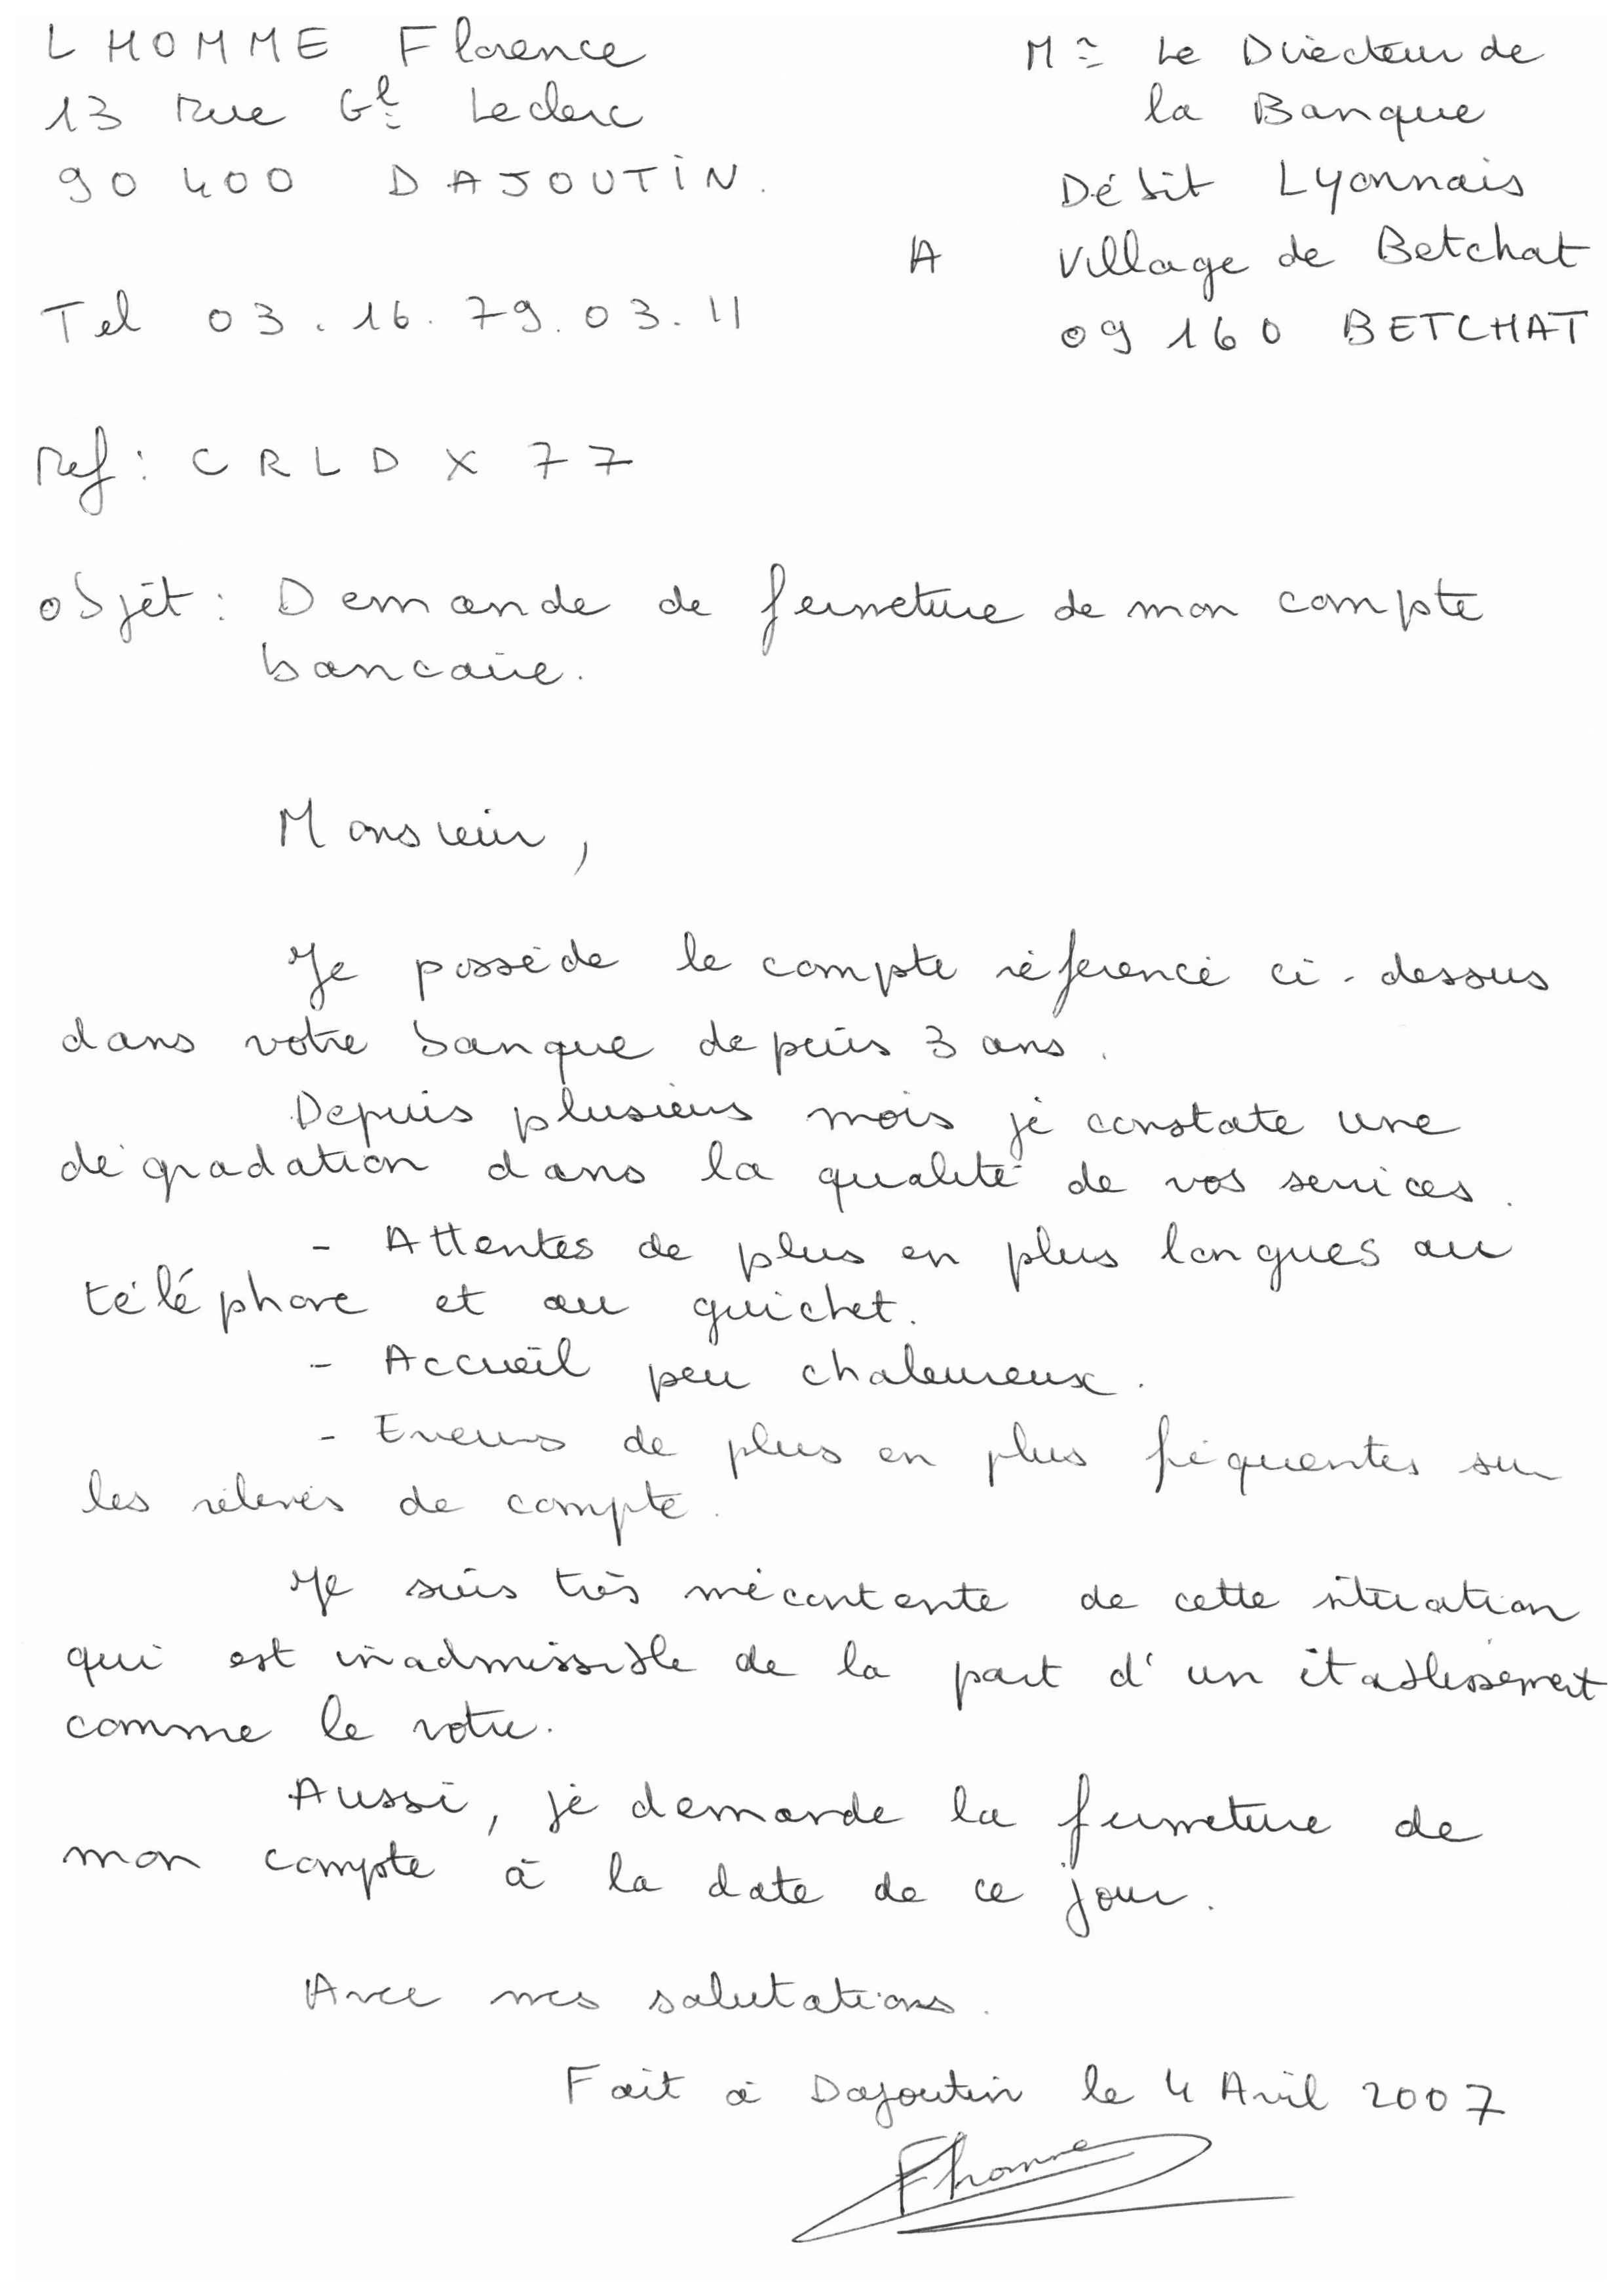 LHOMME Florence
13 Rue Gl Leclerc
90 400 DAJOUTIN.
Tel 03.16.79.03.11
Mr Le Directeur de
la Banque
Débit Lyonnais
A Village de Betchat
09 160 BETCHAT
Ref : CRLDX77
objet : Demande de fermeture de mon compte
bancaire.
Monsieur,
Je possède le compte référencé ci-dessus
dans votre banque depuis 3 ans.
Depuis plusieurs mois je constate une
dégradation dans la qualité de vos services.
- Attentes de plus en plus longues au
téléphone et au guichet.
- Accueil peu chaleureux.
- Erreurs de plus en plus fréquentes sur
les relevés de compte.
Je suis très mécontente de cette situation
qui est inadmissible de la part d'un établissement
comme le votre.
Aussi, je demande la fermeture de
mon compte à la date de ce jour.
Avec mes salutations.
Fait à Dajoutin le 4 Avril 2007
Fhomme